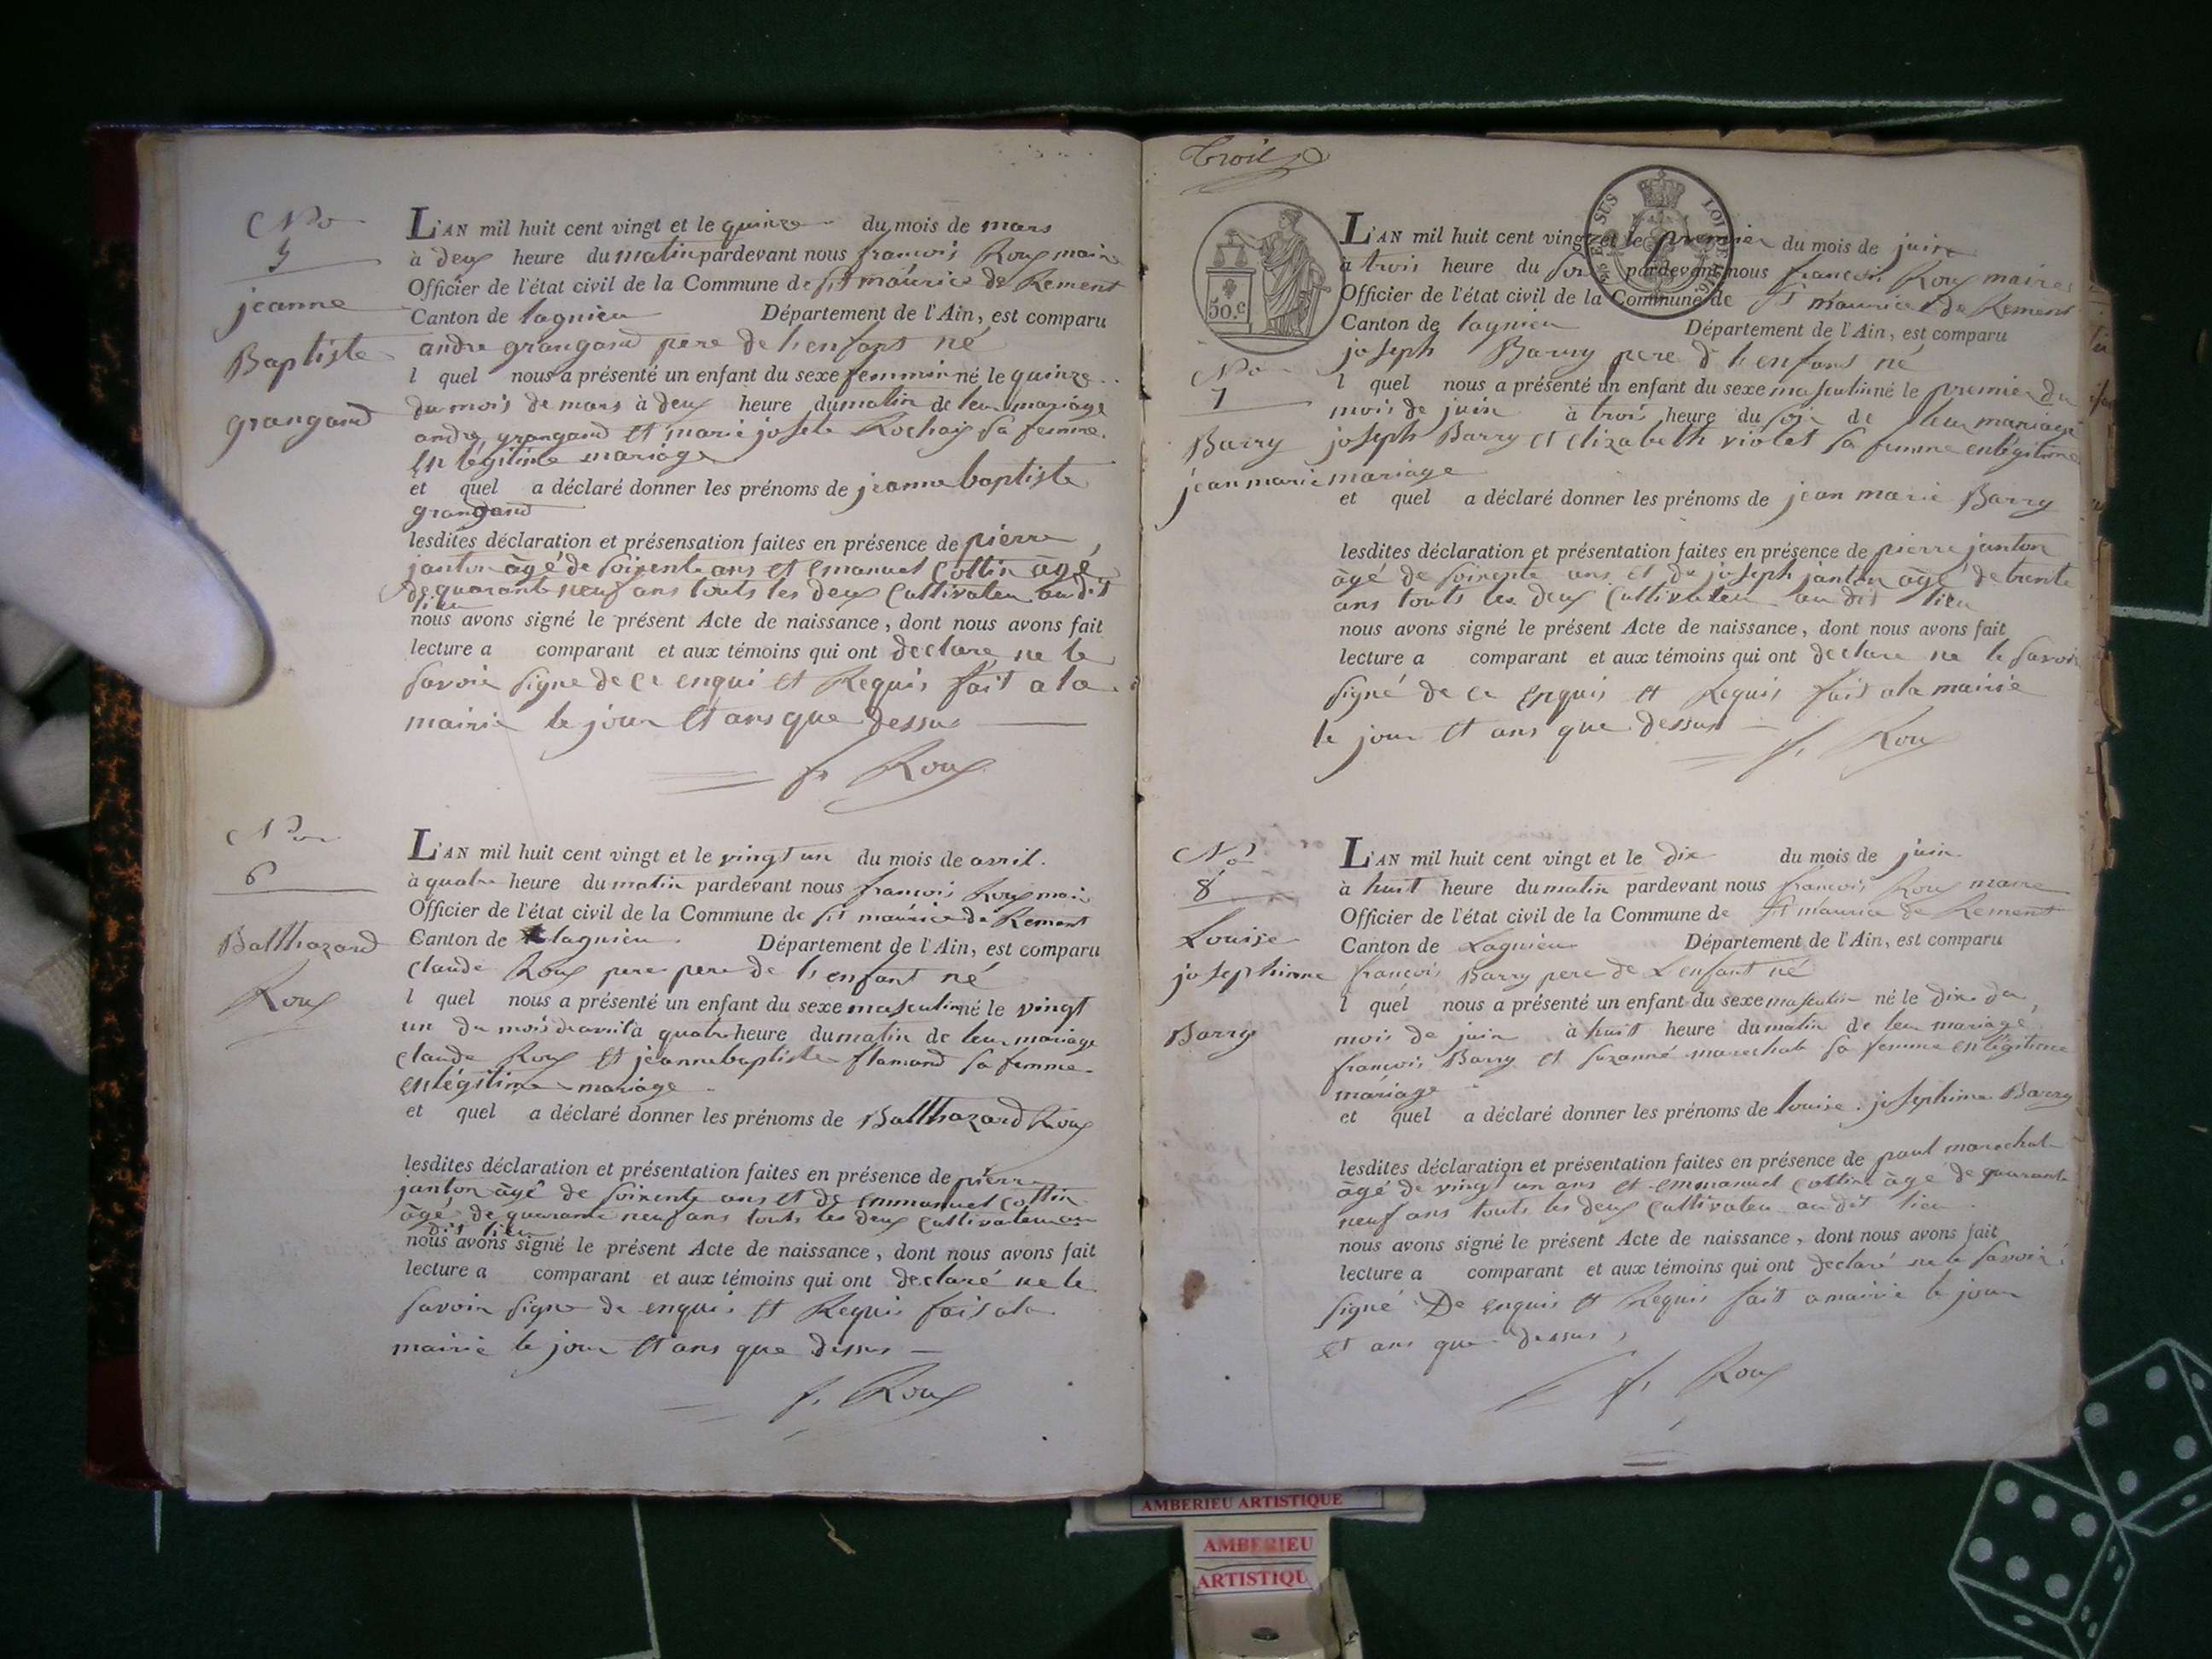 No
5
jeanne
Baptiste
grangand
L'AN mil huit cent vingt et le quinze du mois de mars
à deux heure du matin pardevant nous francois Roux maire
Officier de l'état civil de la Commune de st maurice de Rement
Canton de lagnieu Département de l'Ain, est comparu
andre grangand pere de l'enfant né
l quel nous a présenté un enfant du sexe feminin né le quinze
du mois de mars à deux heure du matin de leur mariage
andre grangand et marie josete Rochaix sa femme
en légitime mariage
et quel a déclaré donner les prénoms de jeanne baptiste
grangand
lesdites déclaration et présensation faites en présence de pierre
janton âgé de soixente ans et Emanuel Cottin âgé
de quarante neuf ans touts les deux Cultivateu au dit
lieu
nous avons signé le présent Acte de naissance, dont nous avons fait
lecture a comparant et aux témoins qui ont declare ne le
savoir signe de ce enqui et Requis fait a la
mairie le jour et ans que dessus
fs Roux
No
6
Balthazard
Roux
L'AN mil huit cent vingt et le vingt un du mois de avril.
à quatre heure du matin pardevant nous francois Roux mair
Officier de l'état civil de la Commune de st maurice de Rement
Canton de lagnieu. Département de l'Ain, est comparu
claude Roux pere pere de l'enfant né
l quel nous a présenté un enfant du sexe masculin né le vingt
un du mois de avril à quatre heure du matin de leur mariage
claude Roux et jeanne baptiste flamand sa femme
en légitime mariage
et quel a déclaré donner les prénoms de Balthazard Roux
lesdites déclaration et présentation faites en présence de pierre
janton âgé de soixente ans et de emmanuel cottin
âgé de quarante neuf ans touts les deux Cultivateu au
dit lieu
nous avons signé le présent Acte de naissance, dont nous avons fait
lecture a comparant et aux témoins qui ont declaré ne le
savoir signe de enquis et Requis fait a la
mairie le jour et ans que dessus
f. Roux
troix
50.C
SUS
LOI DE 1816
L'AN mil huit cent vingt et le premier du mois de juin
à trois heure du soir pardevant nous francois Roux maire
Officier de l'état civil de la Commune de st maurice de Rement
Canton de lagnieu Département de l'Ain, est comparu
joseph Barry pere de l'enfant né
No
7
Barry
jean marie
l quel nous a présenté un enfant du sexe masculin né le premier du
mois de juin à trois heure du soir de leur mariage
joseph Barry et elizabeth violet sa femme en légitime
mariage
et quel a déclaré donner les prénoms de jean marie Barry
lesdites déclaration et présentation faites en présence de pierre janton
âgé de soixente ans et de joseph janton âgé de trente
ans touts les deux Cultivateu au dit lieu
nous avons signé le présent Acte de naissance, dont nous avons fait
lecture a comparant et aux témoins qui ont declare ne le savoir
signé de ce enquis et Requis fait a la mairie
le jour et ans que dessus
f, Roux
No
8
Louise
josephinne
Barry
L'AN mil huit cent vingt et le dix du mois de juin
à huit heure du matin pardevant nous francois Roux maire
Officier de l'état civil de la Commune de st maurice de Rement
Canton de Lagnieu Département de l'Ain, est comparu
francois Barry pere de L'enfant né
l quel nous a présenté un enfant du sexe masculin né le dix du
mois de juin à huit heure du matin de leur mariage
francois Barry et suzanne marechale sa femme en légitime
mariage
et quel a déclaré donner les prénoms de louise. josephinne Barry
lesdites déclaration et présentation faites en présence de paul marechal
âgé de vingt un ans et emmanuel cottin âgé de quarante
neuf ans touts les deux Cultivateu au dit lieu
nous avons signé le présent Acte de naissance, dont nous avons fait
lecture a comparant et aux témoins qui ont declaré ne le savoir
signé De enquis et Requis fait a mairie le jour
et ans que dessus,
f, Roux
AMBERIEU ARTISTIQUE
AMBERIEU
ARTISTIQU